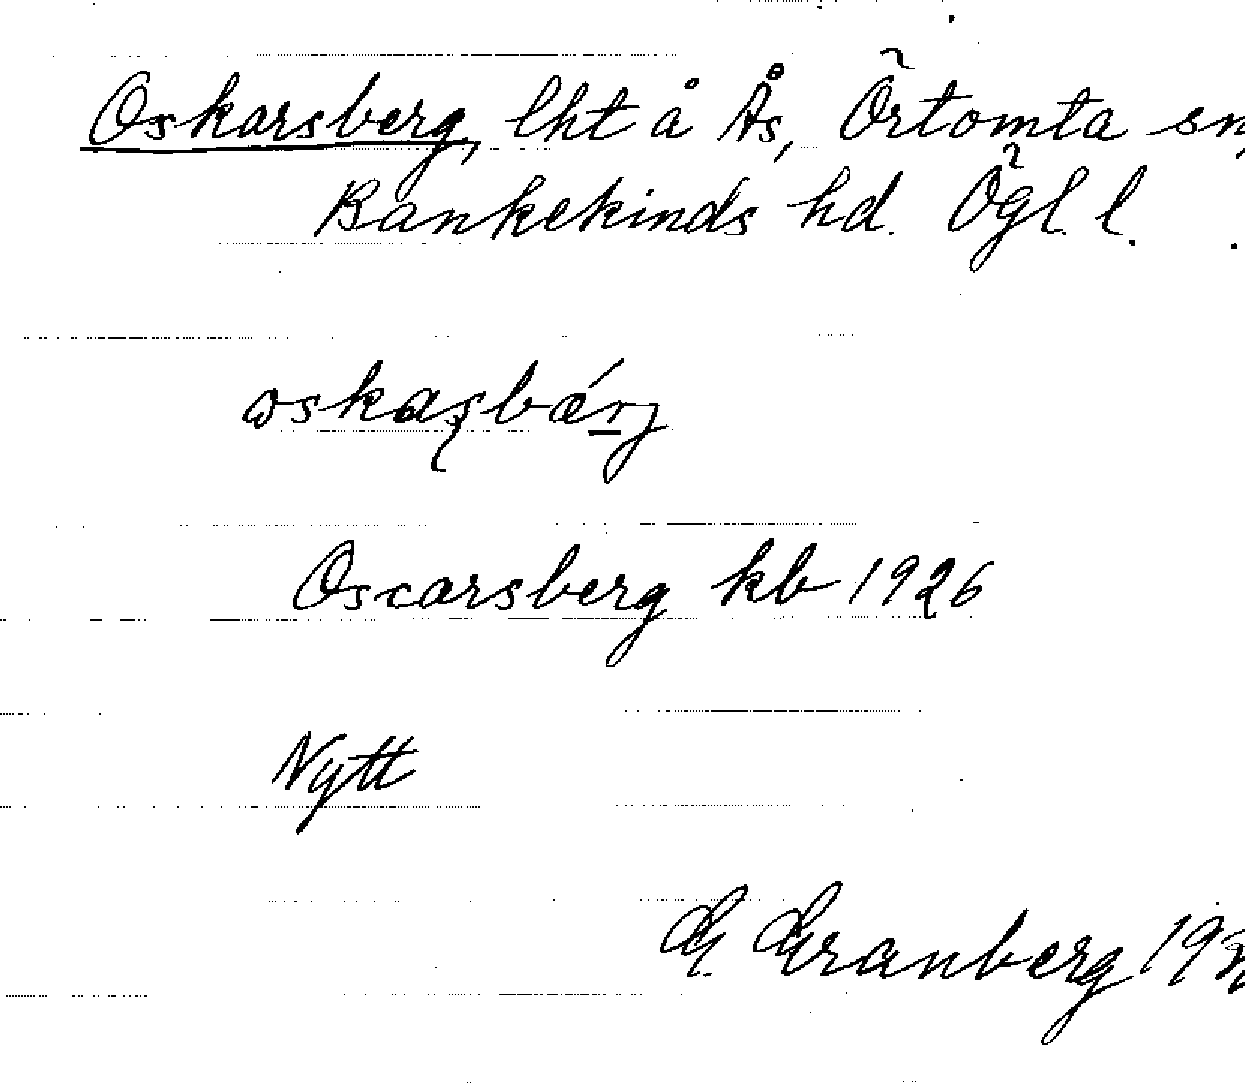 Oskarsberg, lht å Ås, Örtomta sn,
Bankekinds hd. Ögl. l.
oskaʂbǽrj
Oscarsberg kb 1926
Nytt
G Granberg